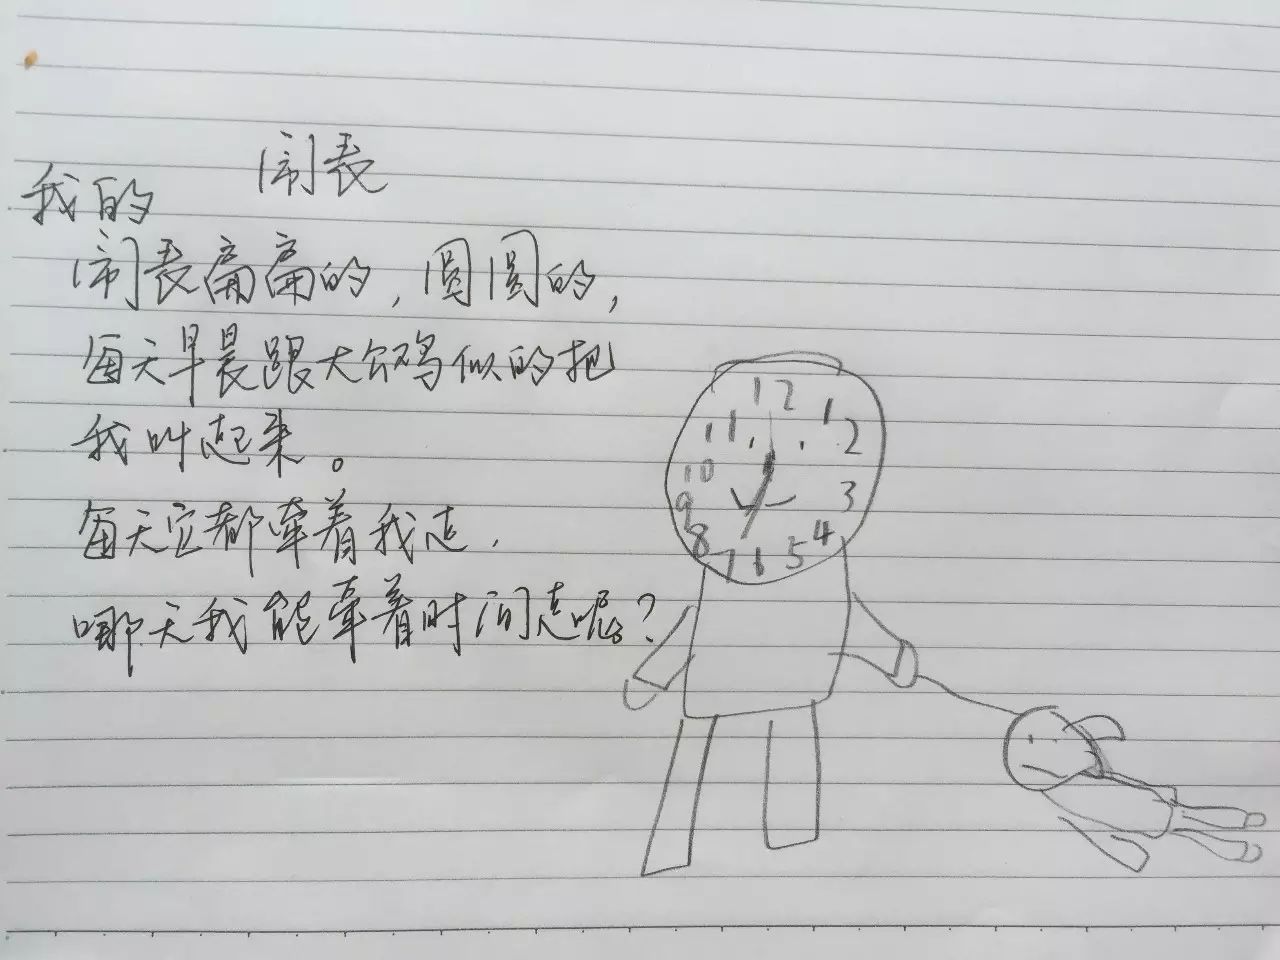 闹表
我的
闹表扁扁的，圆圆的，
每天早晨跟大公鸡似的把
我叫起来。
每天它都牵着我走，
哪天我能牵着时间走呢？
12
11 1
2
10
9 3
8 4
7 6 5